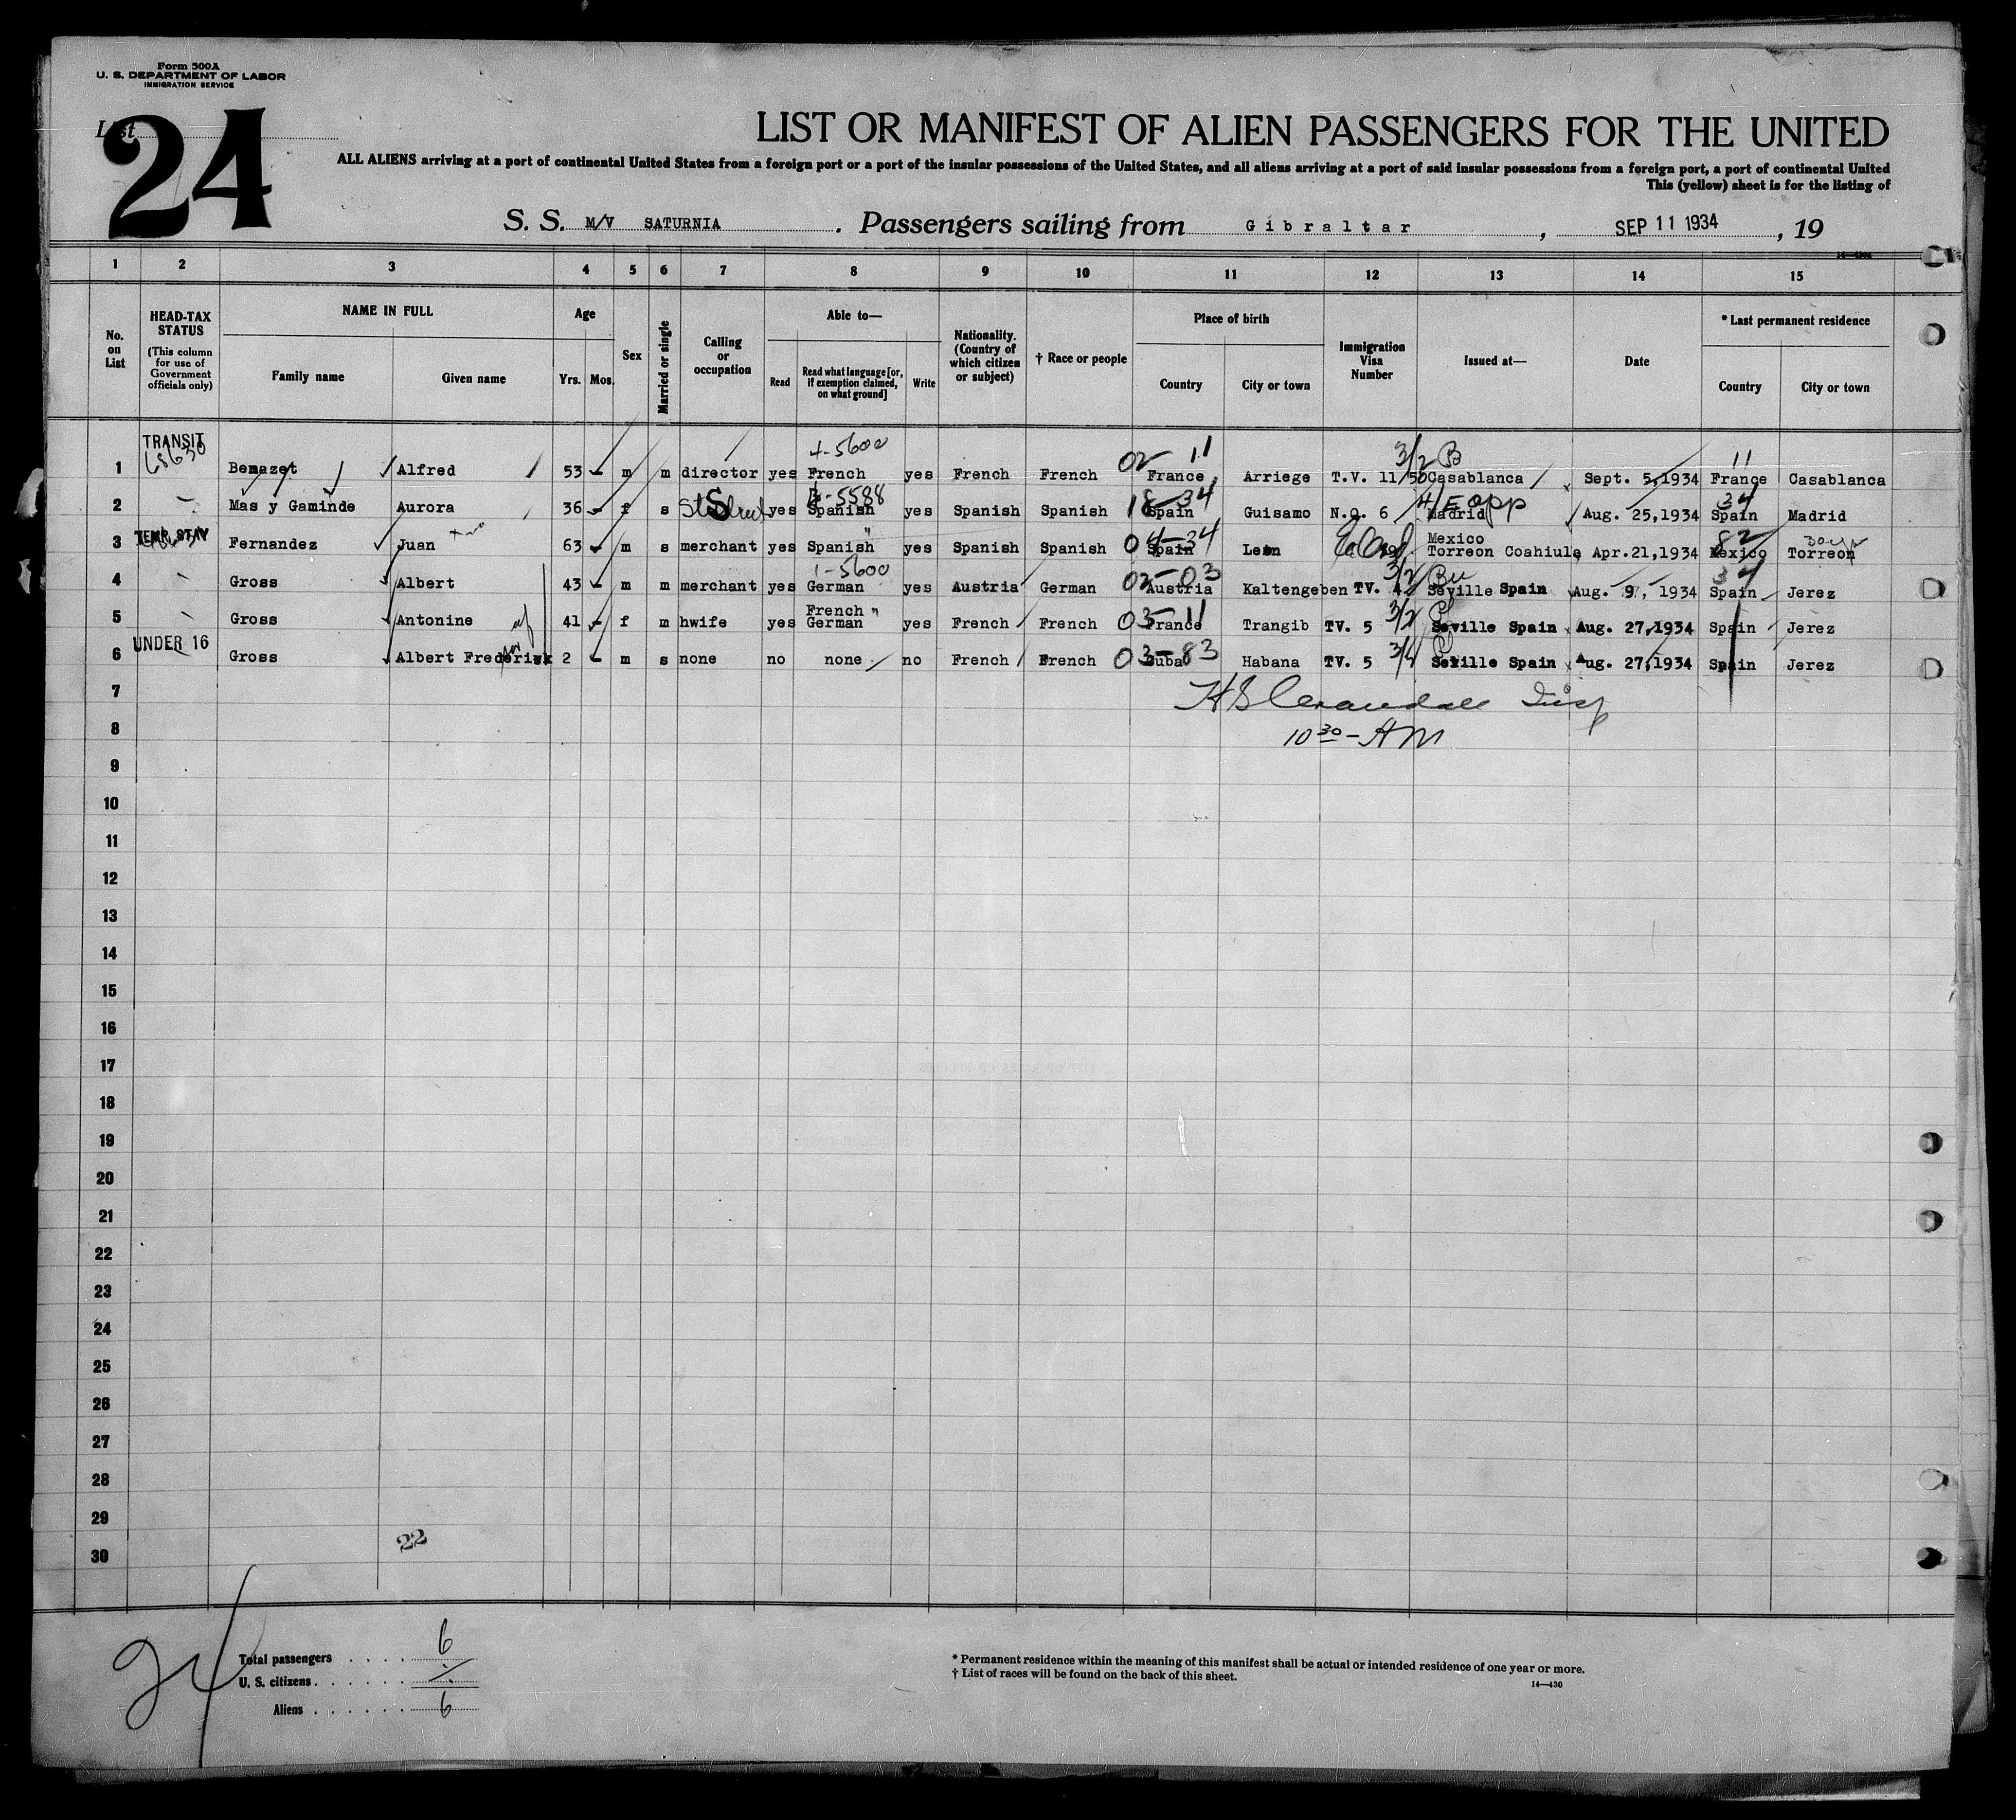 Form 500A
U. S. DEPARTMENT OF LABOR
IMMIGRATION SERVICE
List
24
LIST OR MANIFEST OF ALIEN PASSENGERS FOR THE UNITED
ALL ALIENS arriving at a port of continental United States from a foreign port or a port of the insular possessions of the United States, and all aliens arriving at a port of said insular possessions from a foreign port, a port of continental United
This (yellow) sheet is for the listing of
S. S. M/V SATURNIA. Passengers sailing from Gibraltar, SEP 11 1934, 19
1 2 3 4 5 6 7 8 9 10 11 12 13 14 15
No. on List
HEAD-TAX STATUS
(This column for use of Government officials only)
NAME IN FULL
Family name
Given name
Age
Yrs. Mos.
Sex
Married or single
Calling or occupation
Able to—
Read
Read what language [or, if exemption claimed, on what ground]
Write
Nationality. (Country of which citizen or subject)
† Race or people
Place of birth
Country
City or town
Immigration Visa Number
Issued at—
Date
* Last permanent residence
Country
City or town
TRANSIT 4-5600 02 11 3/2 B 11
1 68630 Benazet Alfred 53 m m director yes French yes French French France Arriege T.V. 11/50 Casablanca Sept. 5,1934 France Casablanca
5588 18-34 4/ E opp 34
2 Mas y Gaminde Aurora 36 f s yes Spanish yes Spanish Spanish Spain Guisamo N.Q. 6 Madrid Aug. 25,1934 Spain Madrid
TEMP. STAY " 04-34 Mexico 82
3 Fernandez Juan 63 m s merchant yes Spanish yes Spanish Spanish Spain Leon Torreon Coahiula Apr.21,1934 Mexico Torreon
1-5600 02-03 3/2 34
4 Gross Albert 43 m m merchant yes German yes Austria German Austria Kaltengeben TV. 4 Seville Spain Aug. 9, 1934 Spain Jerez
French " 03-11 3/2
5 Gross Antonine 41 f m hwife yes German yes French French France Trangib TV. 5 Seville Spain Aug. 27,1934 Spain Jerez
UNDER 16 03-83 3/4
6 Gross Albert Frederick 2 m s none no none no French French Cuba Habana TV. 5 Seville Spain Aug. 27,1934 Spain Jerez
7
8 10 30 - AM
9
10
11
12
13
14
15
16
17
18
19
20
21
22
23
24
25
26
27
28
29
30
22
24
Total passengers 6
U. S. citizens
Aliens 6
* Permanent residence within the meaning of this manifest shall be actual or intended residence of one year or more.
† List of races will be found on the back of this sheet.
14—430